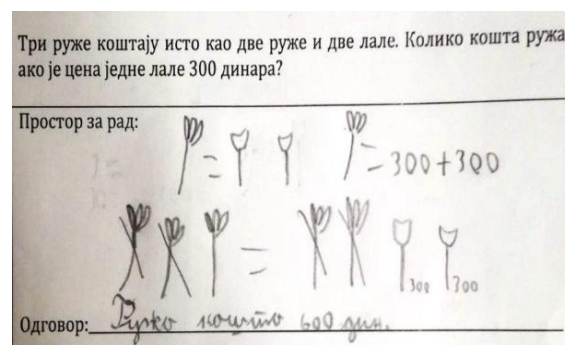 Три руже коштају исто као две руже и две лале. Колико кошта ружа
ако је цена једне лале 300 динара?
Простор за рад:
= = 300 + 300
= 300 300
Одговор: Ружа кошта 600 дин.